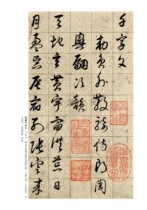 千字文
勅員外散騎侍郎周
興嗣次韻
天地玄黃宇宙洪荒日
月盈昃辰宿列張寒來